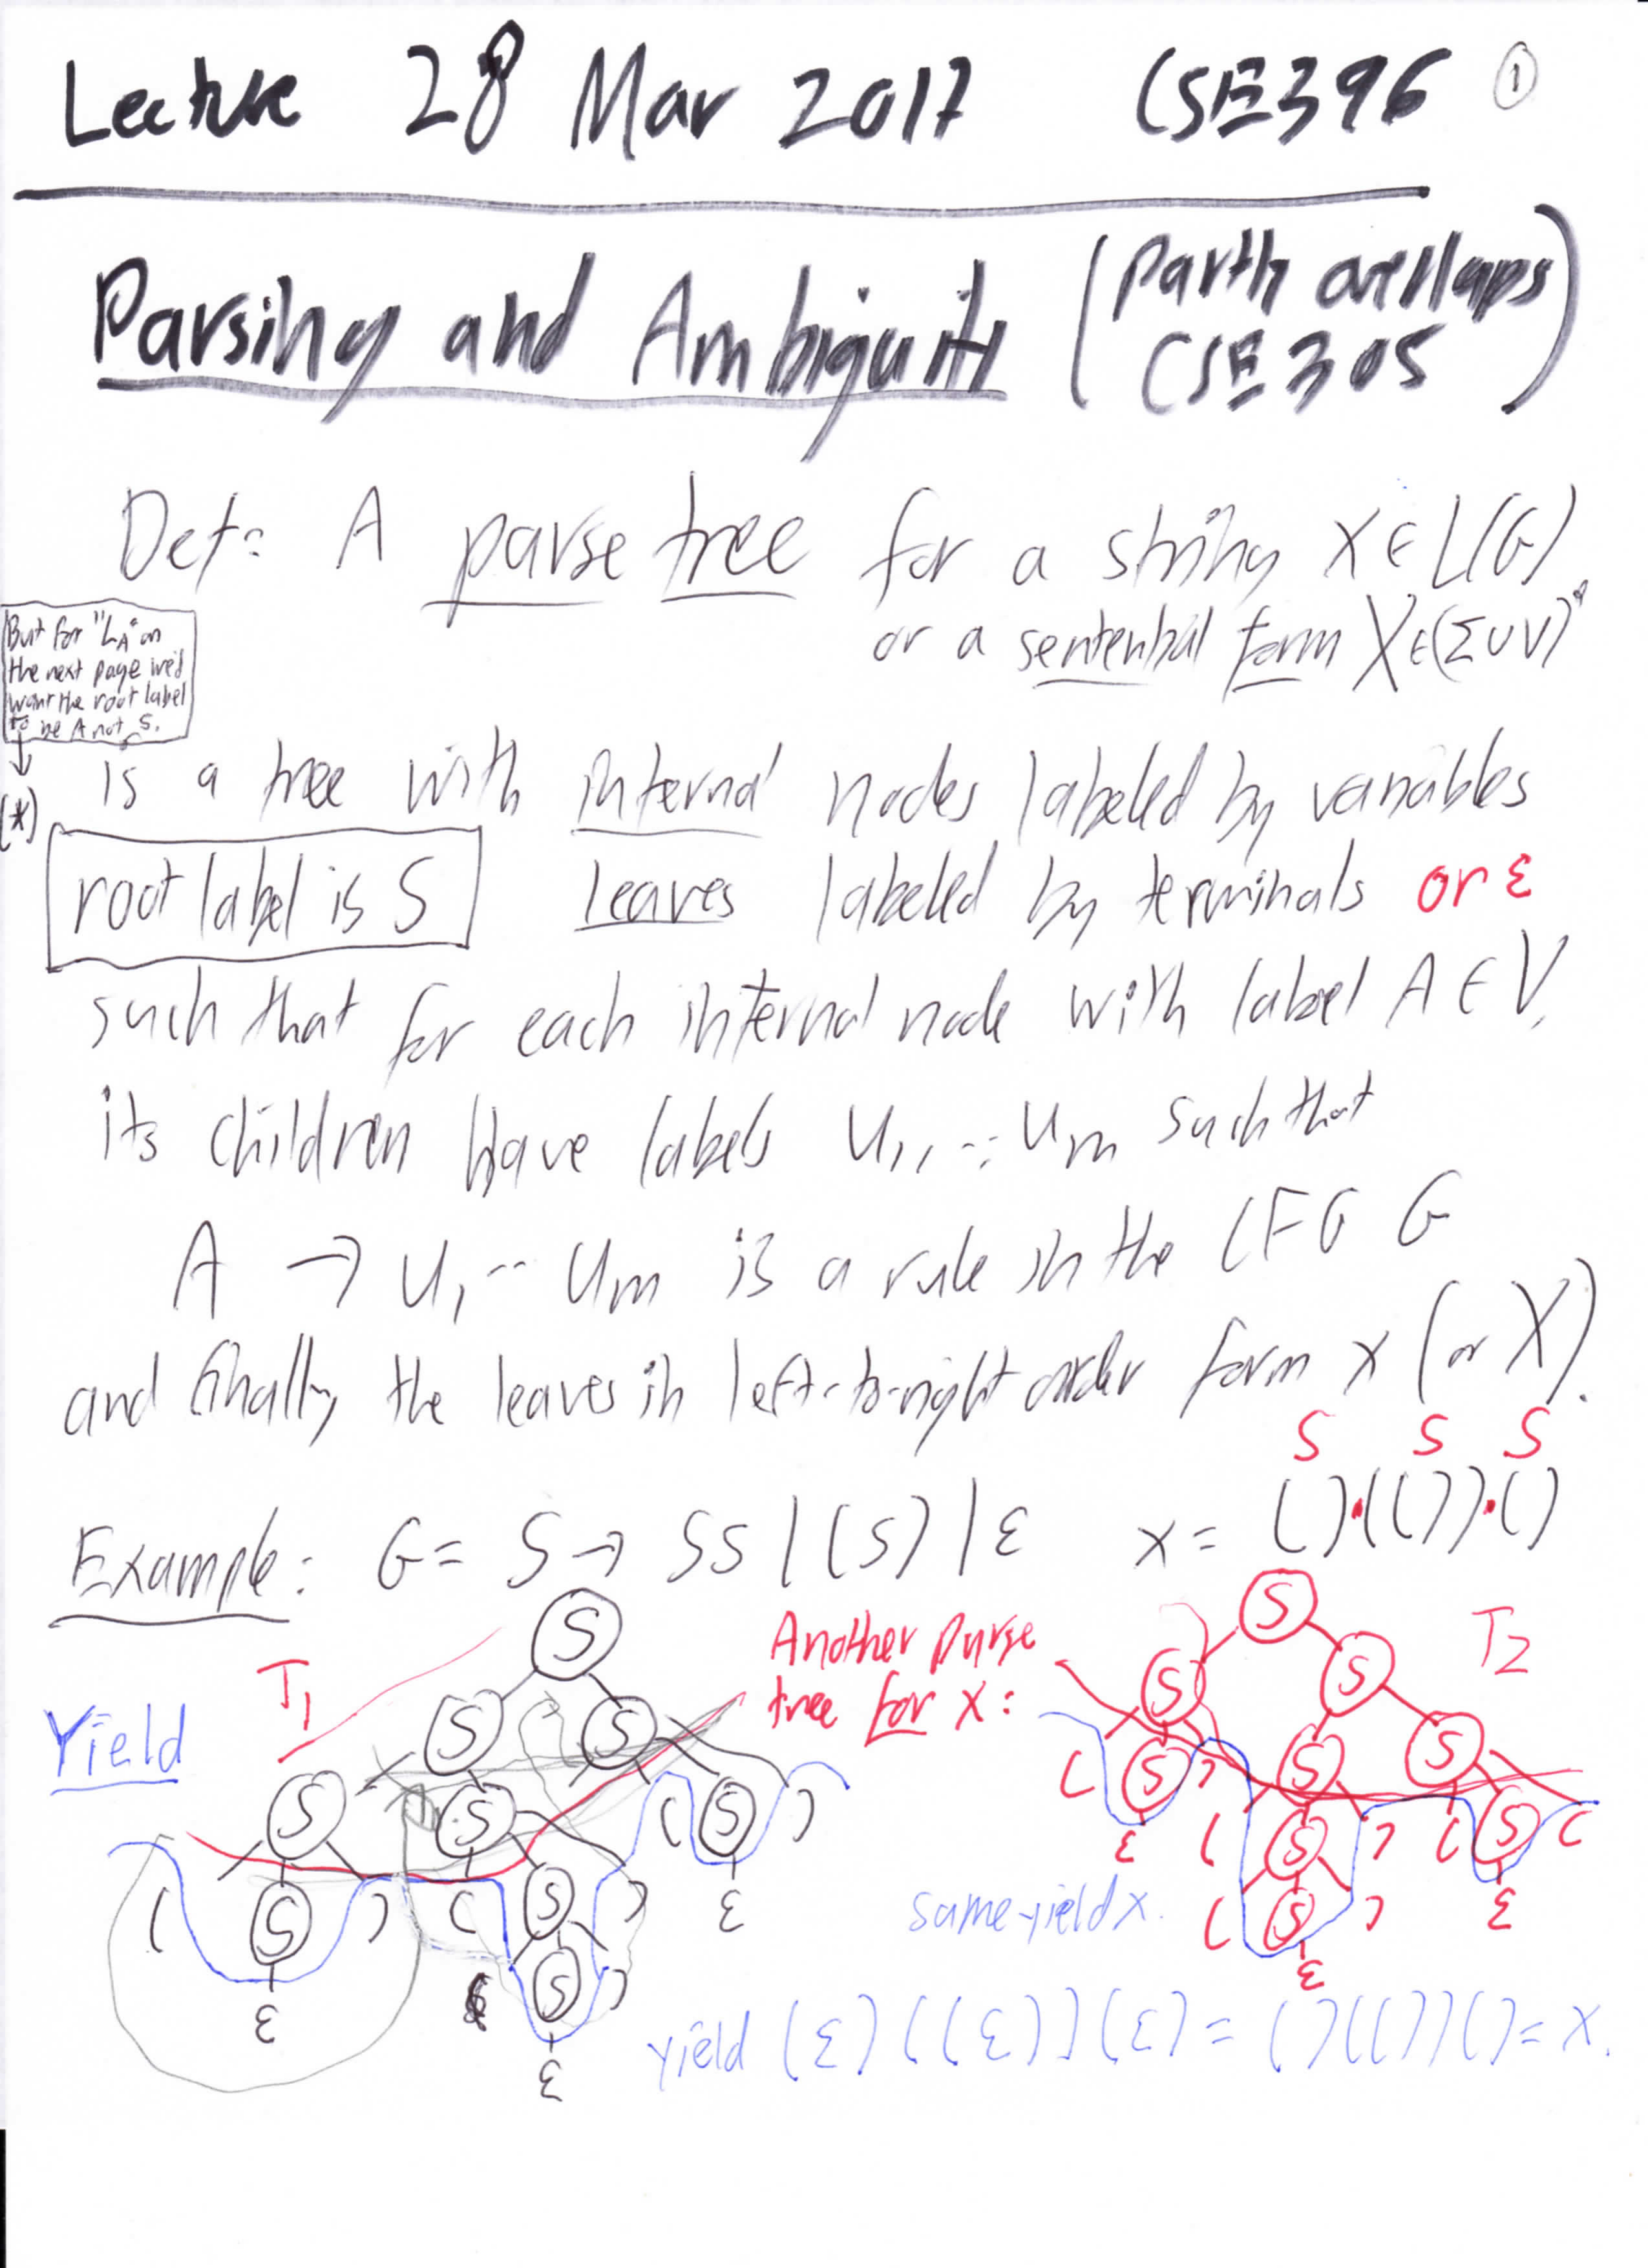 Lecture 28 Mar 2017 CSE396 ①
Parsing and Ambiguity (Partly overlaps CSE305)
Def: A parse tree for a string x ∈ L(G)
or a sentential form X ∈ (Σ ∪ V)*
But for "L_A" on
the next page we'd
want the root label
to be A not S.
↓
(*)
is a tree with internal nodes labeled by variables
root label is S leaves labeled by terminals or ε
such that for each internal node with label A ∈ V,
its children have labels u₁, ..., uₘ such that
A → u₁ ... uₘ is a rule in the CFG G
and finally the leaves in left-to-right order form x (or X).
S S S
Example: G = S → SS | (S) | ε x = ()·(())·()
T₁
Yield
S
S S
S S ( S )
( S ) ( S ) ε
ε ( S )
ε
Another parse
tree for x:
T2
S
S S
( S ) S S
ε ( S ) ( S (
( S ) ε
ε
same yield x.
yield (ε)((ε))(ε) = ()(())() = x.